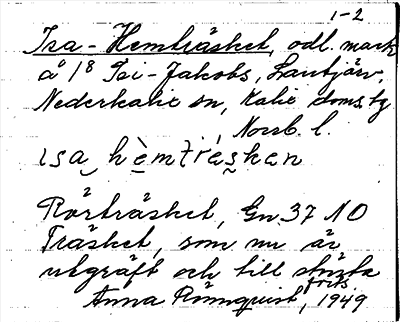 1-2
Isa-Hemträsket, odl. mark
å 1/8 Isi-Jakobs, Lantjärv,
Nederkalix sn, Kalix doms. tg
, Norrb. l.
isa hemtresken
Rörträsket, Gn. 37 NO
Träsket, som nu är
utgräft och till största
Anna Rönnquist, 1949